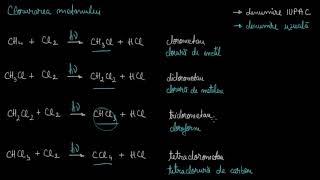 Clorurarea metanului
→ denumire IUPAC
→ denumire uzuală
CH₄ + Cl₂ —hν→ CH₃Cl + HCl clorometan
clorură de metil
CH₃Cl + Cl₂ —hν→ CH₂Cl₂ + HCl diclorometan
clorură de metilen
CH₂Cl₂ + Cl₂ —hν→ CHCl₃ + HCl triclorometan
cloroform
CHCl₃ + Cl₂ —hν→ CCl₄ + HCl tetraclorometan
tetraclorură de carbon